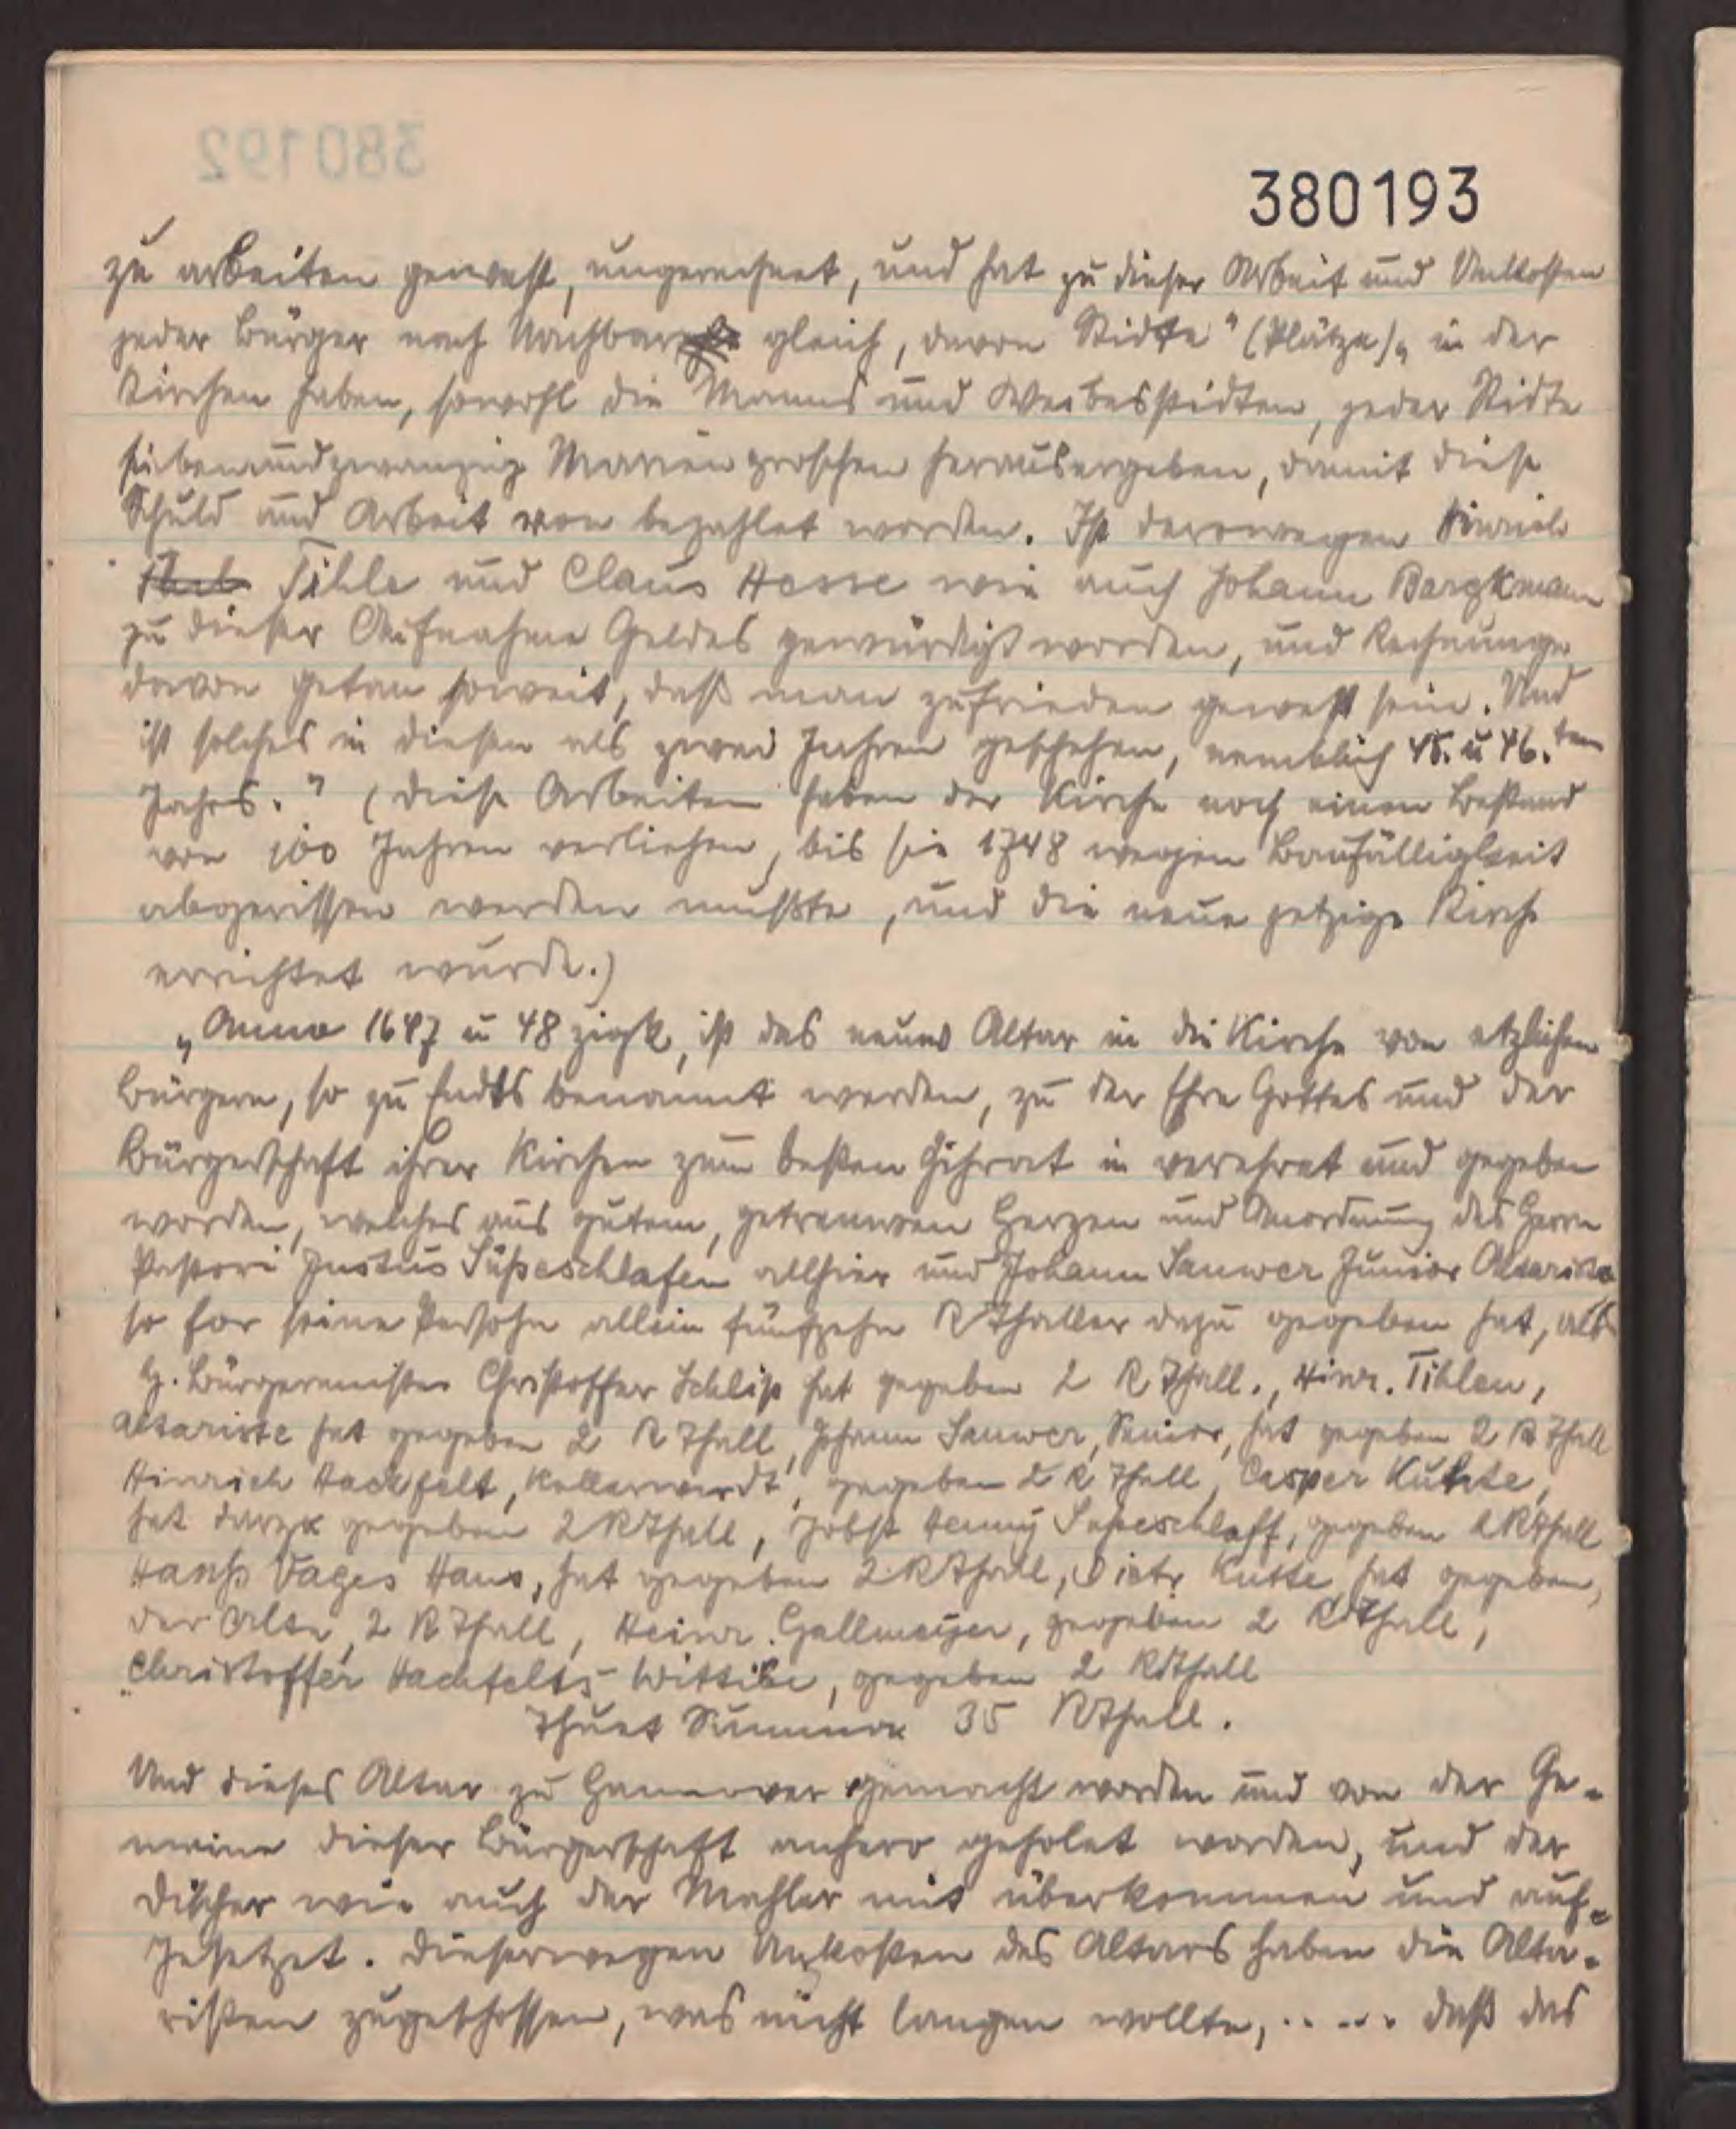 380192
380193
zu arbeiten gewest, ungerechnet, und hat zu dieser Arbeit und Unkosten
jeder Bürger nach Nachbar gleich, davon Stidte" (Plätze)„ in der
Kirchen haben, sowohl die Manns und Weibesstidten, jeder Stidte
siebenundzwanzig Mariengroschen herausergeben, damit diese
Schuld und Arbeit von bezahlet worden. Ist derowegen Hinrich
Tihle und Claus Hesse wie auch Johann Bargkmann
zu dieser Aufnahme Geldes gewürdigt worden, und Rechnunge
davon getan soweit, daß man zufrieden gewest sein. Und
ist solches in diesen als zwei Jahren geschehen, nemblich 45. u 46.ten
Jahrs." (Diese Arbeiten haben der Kirche noch einen Bestand
von 100 Jahren verliehen, bis sie 1748 wegen Baufälligkeit
abgerissen werden mußte, und die neue jetzige Kirche
errichtet wurde.)
„Anno 1647 u 48 zigk, ist das neuwe Altar in die Kirche von etzlichen
Bürgern, so zu Endts benannt werden, zu der Ehre Gottes und der
Bürgerschaft ihrer Kirchen zum besten Zihrat in verehret und gegeben
worden, welches aus gutem, getreuwen Herzen und Anordnung des Herrn
Pastori Justus Süpeschlafen allhier und Johann Sauwer Junior Altarista
so for seine Persohn allein fünfzehn RThaller dazu gegeben hat, als
H. Bürgermeister Christoffer Schlip hat gegeben 2 RThall., Hinr. Tihlen,
Altariste hat gegeben 2 RThall, Johann Sauwer, Senior, hat gegeben 2 RThall
Hinrich Hachfelt, Kellerwerdt, gegeben 2 RThall, Casper Kuhte,
hat darzu gegeben 2 RThall, Jobst Henny Supeschlaff, gegeben 2 RThall
Hanß Vages Haus, hat gegeben 2 RThall, Dietr. Kutte hat gegeben,
der Alte, 2 RThall, Heinr. Gallmeyer, gegeben 2 RThall,
Christoffer Hachfelts Wittibe, gegeben 2 RThall
Thuet Summa 35 RThall.
Und dieses Altar zu Hannover gemacht worden und von der Ge-
meine dieser Bürgerschaft anhero geholet worden, und der
Discher wie auch der Mahler mit überkommen und auf-
gesetzet. Dieserwegen Unkosten des Altars haben die Alta-
risten zugeschossen, was nicht langen wollte, ..... daß das